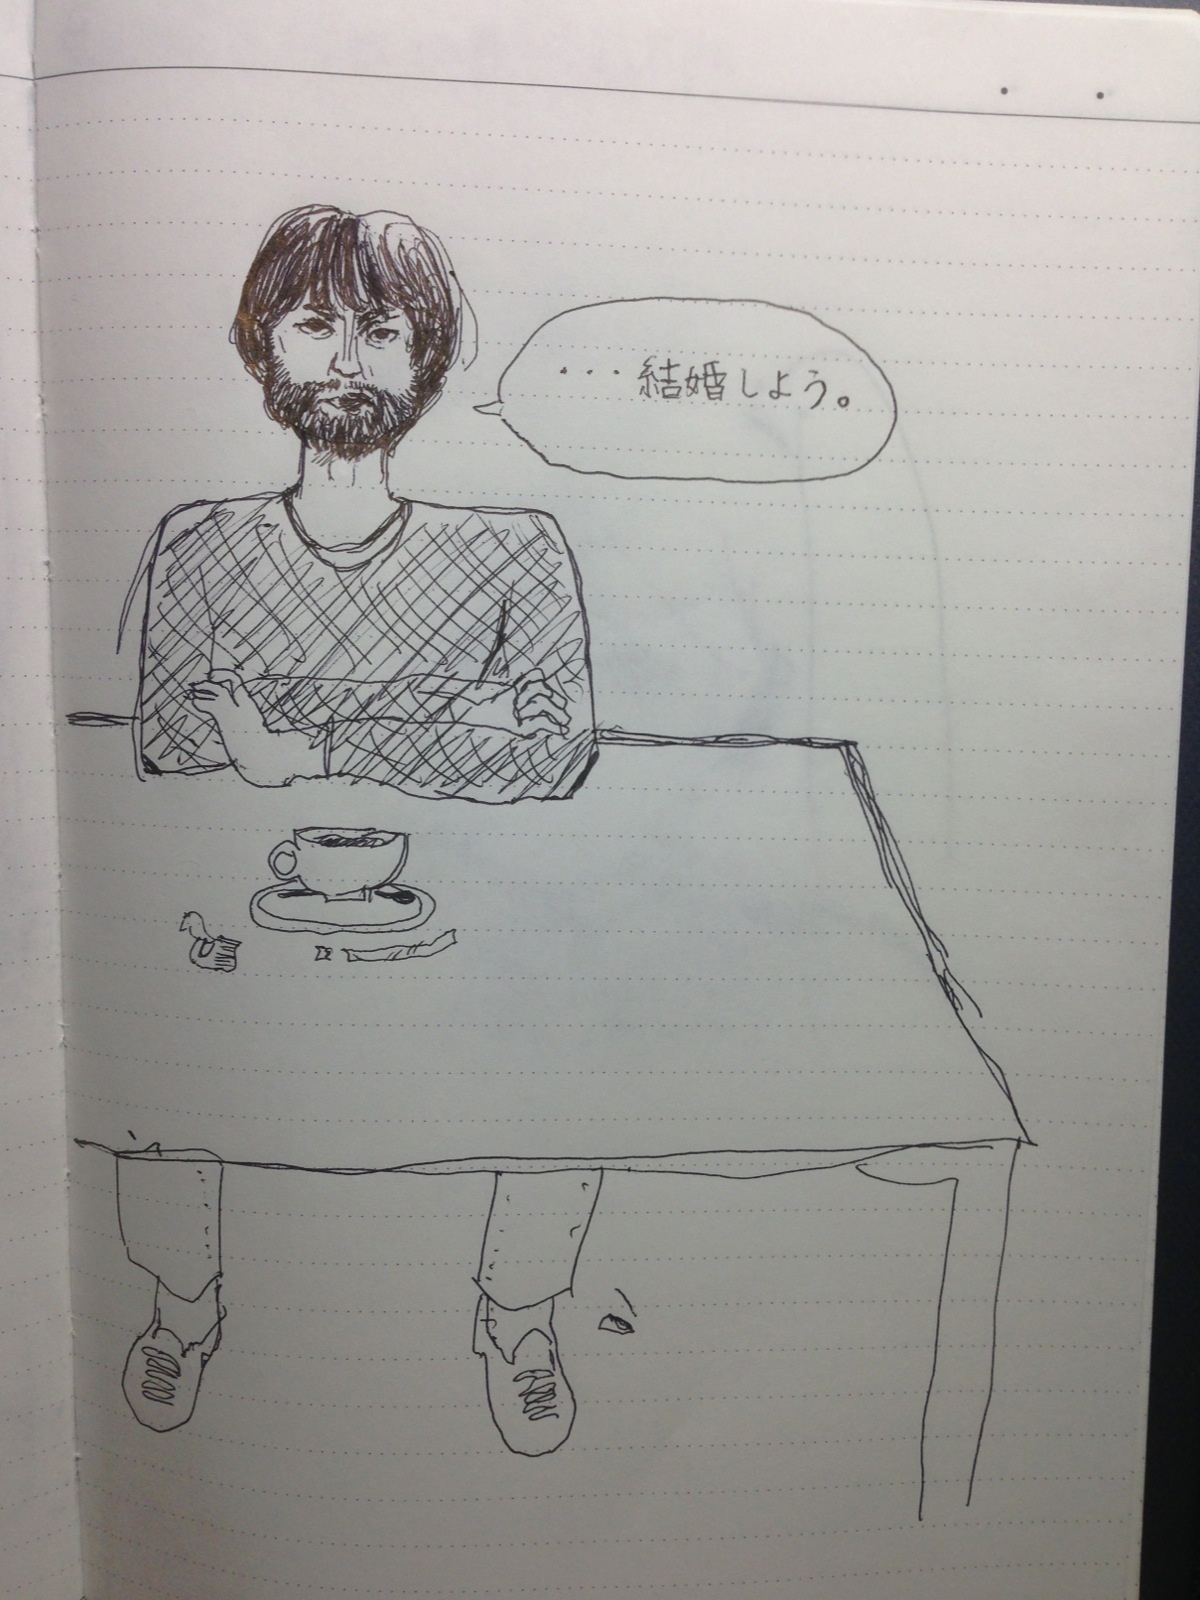 ・・・結婚しよう。